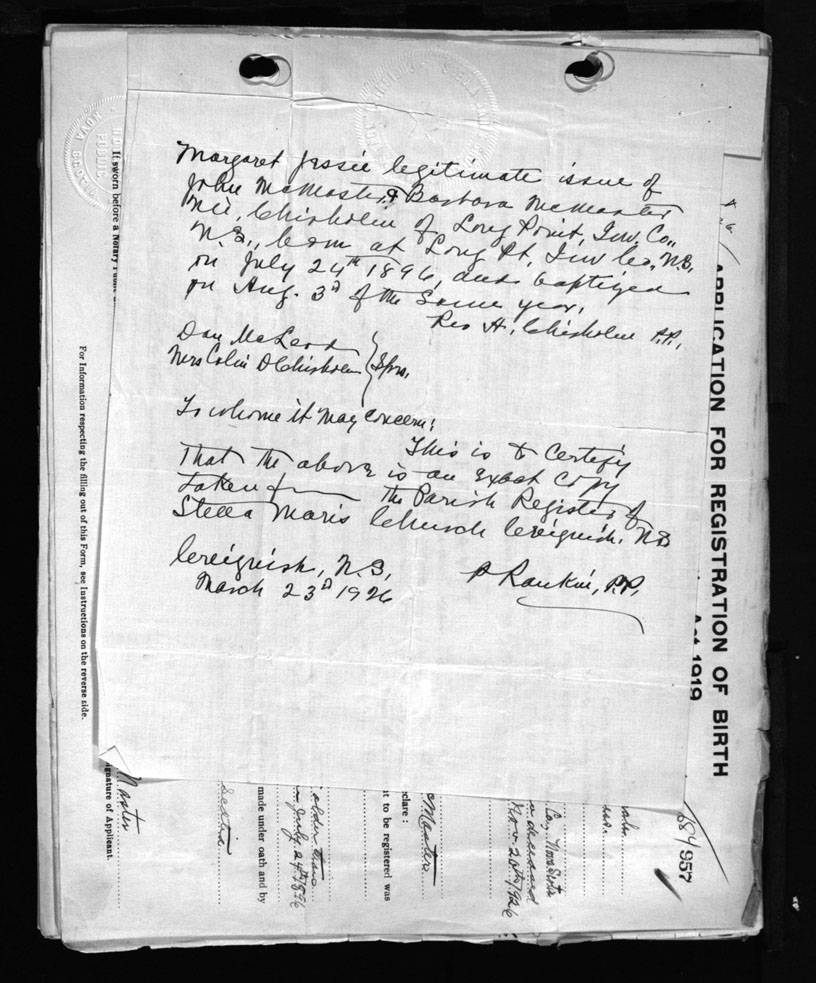 Margaret Jessie legitimate issue of
John McMaster & Barbara McMaster
née, Chisholm of Long Point, Inv. Co.,
N.S., born at Long Pt, Inv Co. N.S.
on July 24th 1896, and baptized
on Aug. 3d of the same year.
Rev H. Chisholm P.P.,
Dan McLeod
Mrs Colin D Chisholm } Sprs.
To whome it may concern:
This is to Certify
That the above is an Exact Copy
taken from the Parish Register of
Stella Maris Church Creignish, N.S
Creignish, N.S,
March 23d 1926
P Rankin, P.P.
If sworn before a Notary Public
For Information respecting the filling out of this Form, see Instructions on the reverse side.
APPLICATION FOR REGISTRATION OF BIRTH
Act 1919
684957
Co., Nova Scotia
Nov 20th 1926
McMaster
eclare :
t to be registered was
older than
July 24th 1896
made under oath and by
Master
ignature of Applicant.
NOVA SCOTIA
PUBLIC